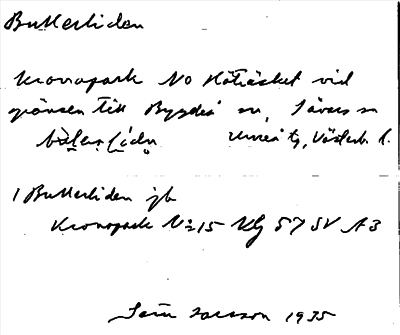 Butterliden
Kronopark NO Hötjäsket vid
gränsen till Bygdeå sn, Sävars sn
Umeå tg, Västerb. l.
1 Butterliden jb
Kronopark Nr 15 Kbg 57 SV A 3
Larsson 1935